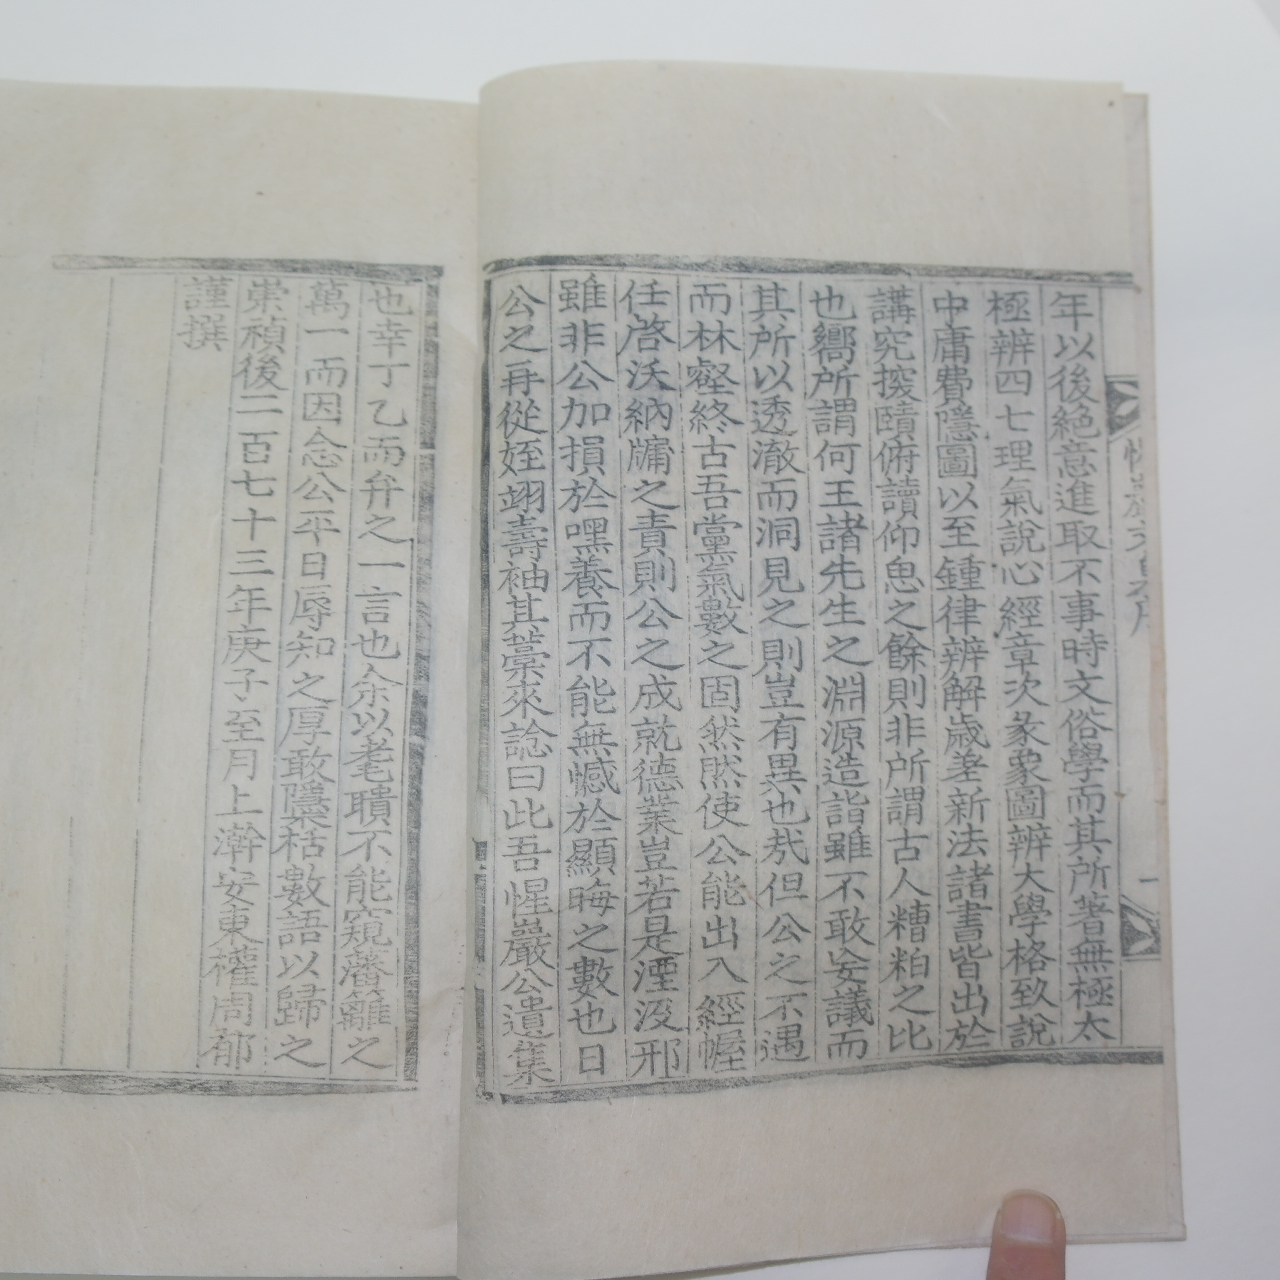 年以後絶意進取不事時文俗學而其所著無極太
極辨四七理氣說心經章次彖象圖辨大學格致說
中庸費隱圖以至鍾律辨解歲差新法諸書皆出於
講究探賾俯讀仰思之餘則非所謂古人糟粕之比
也嚮所謂何王諸先生之淵源造詣雖不敢妄議而
其所以透澈而洞見之則豈有異也㦲但公之不遇
而林壑終古吾黨氣數之固然然使公能出入經幄
任啓沃納牖之責則公之成就德業豈若是湮沒邪
雖非公加損於嘿養而不能無憾於顯晦之數也日
公之再從姪翊壽袖其藁來諗曰此吾惺巖公遺集
也幸丁乙而弁之一言也余以老耄聵不能窺藩籬之
萬一而因念公平日辱知之厚敢檃栝數語以歸之
崇禎後二百七十三年庚子至月上澣安東權周郁
謹撰